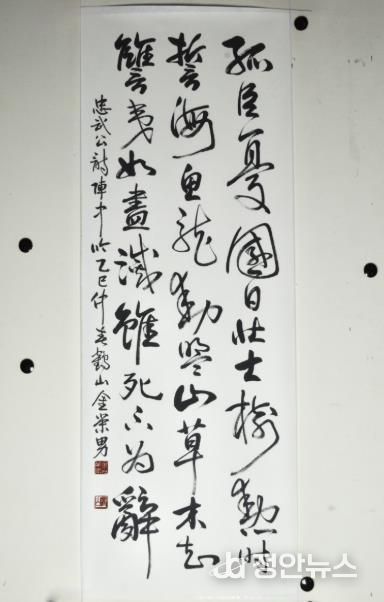 孤臣憂國日壯士樹勳時
誓海魚龍動盟山草木知
讐夷如盡滅雖死不為辭
忠武公詩陣中吟乙巳仲春鶴山金榮男
정안뉴스